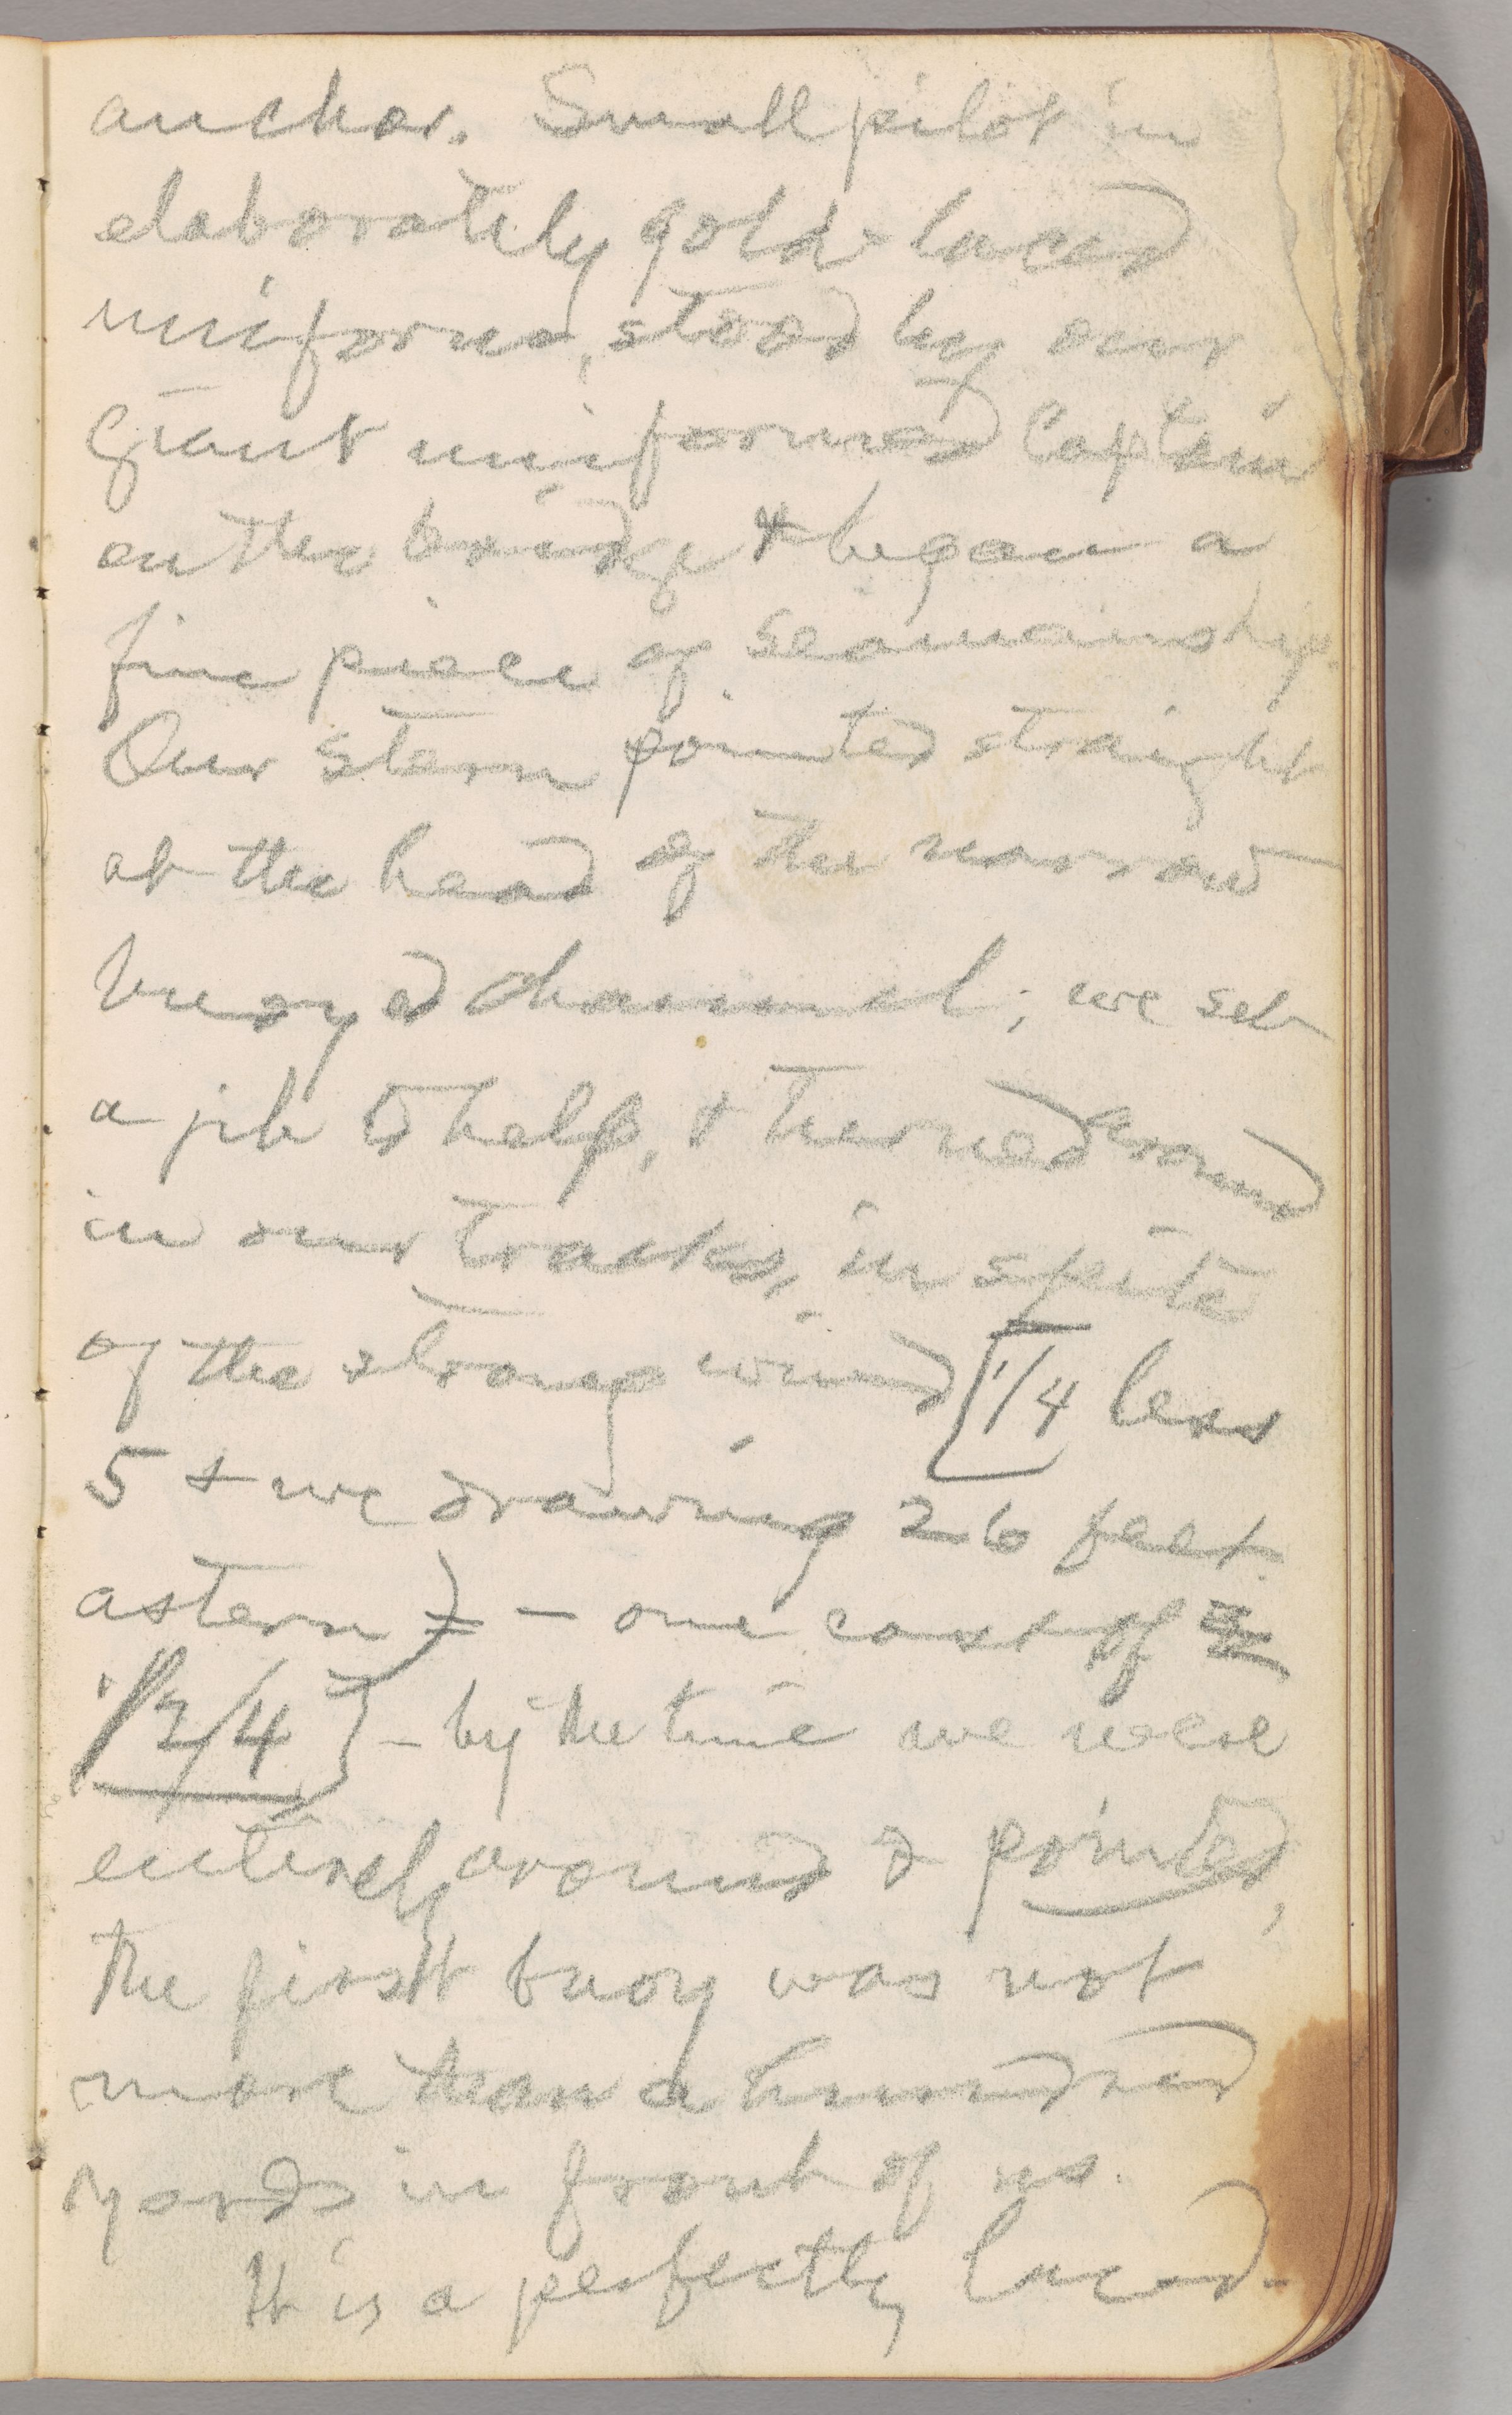 anchor. Small pilot in
elaborately gold-laced
uniform, stood by our
giant uniformed Captain
on the bridge & began a
fine piece of seamanship.
Our stern pointed straight
at the head of the narrow
buoyed channel; we set
a jib to help, & turned around
in our tracks, in spite
of the strong wind [1/4 less
5 & we drawing 26 feet
astern) — one cast of
1 3/4] — by the time we were
entirely around & pointed,
the first buoy was not
more than a hundred
yards in front of us.
It is a perfectly land-